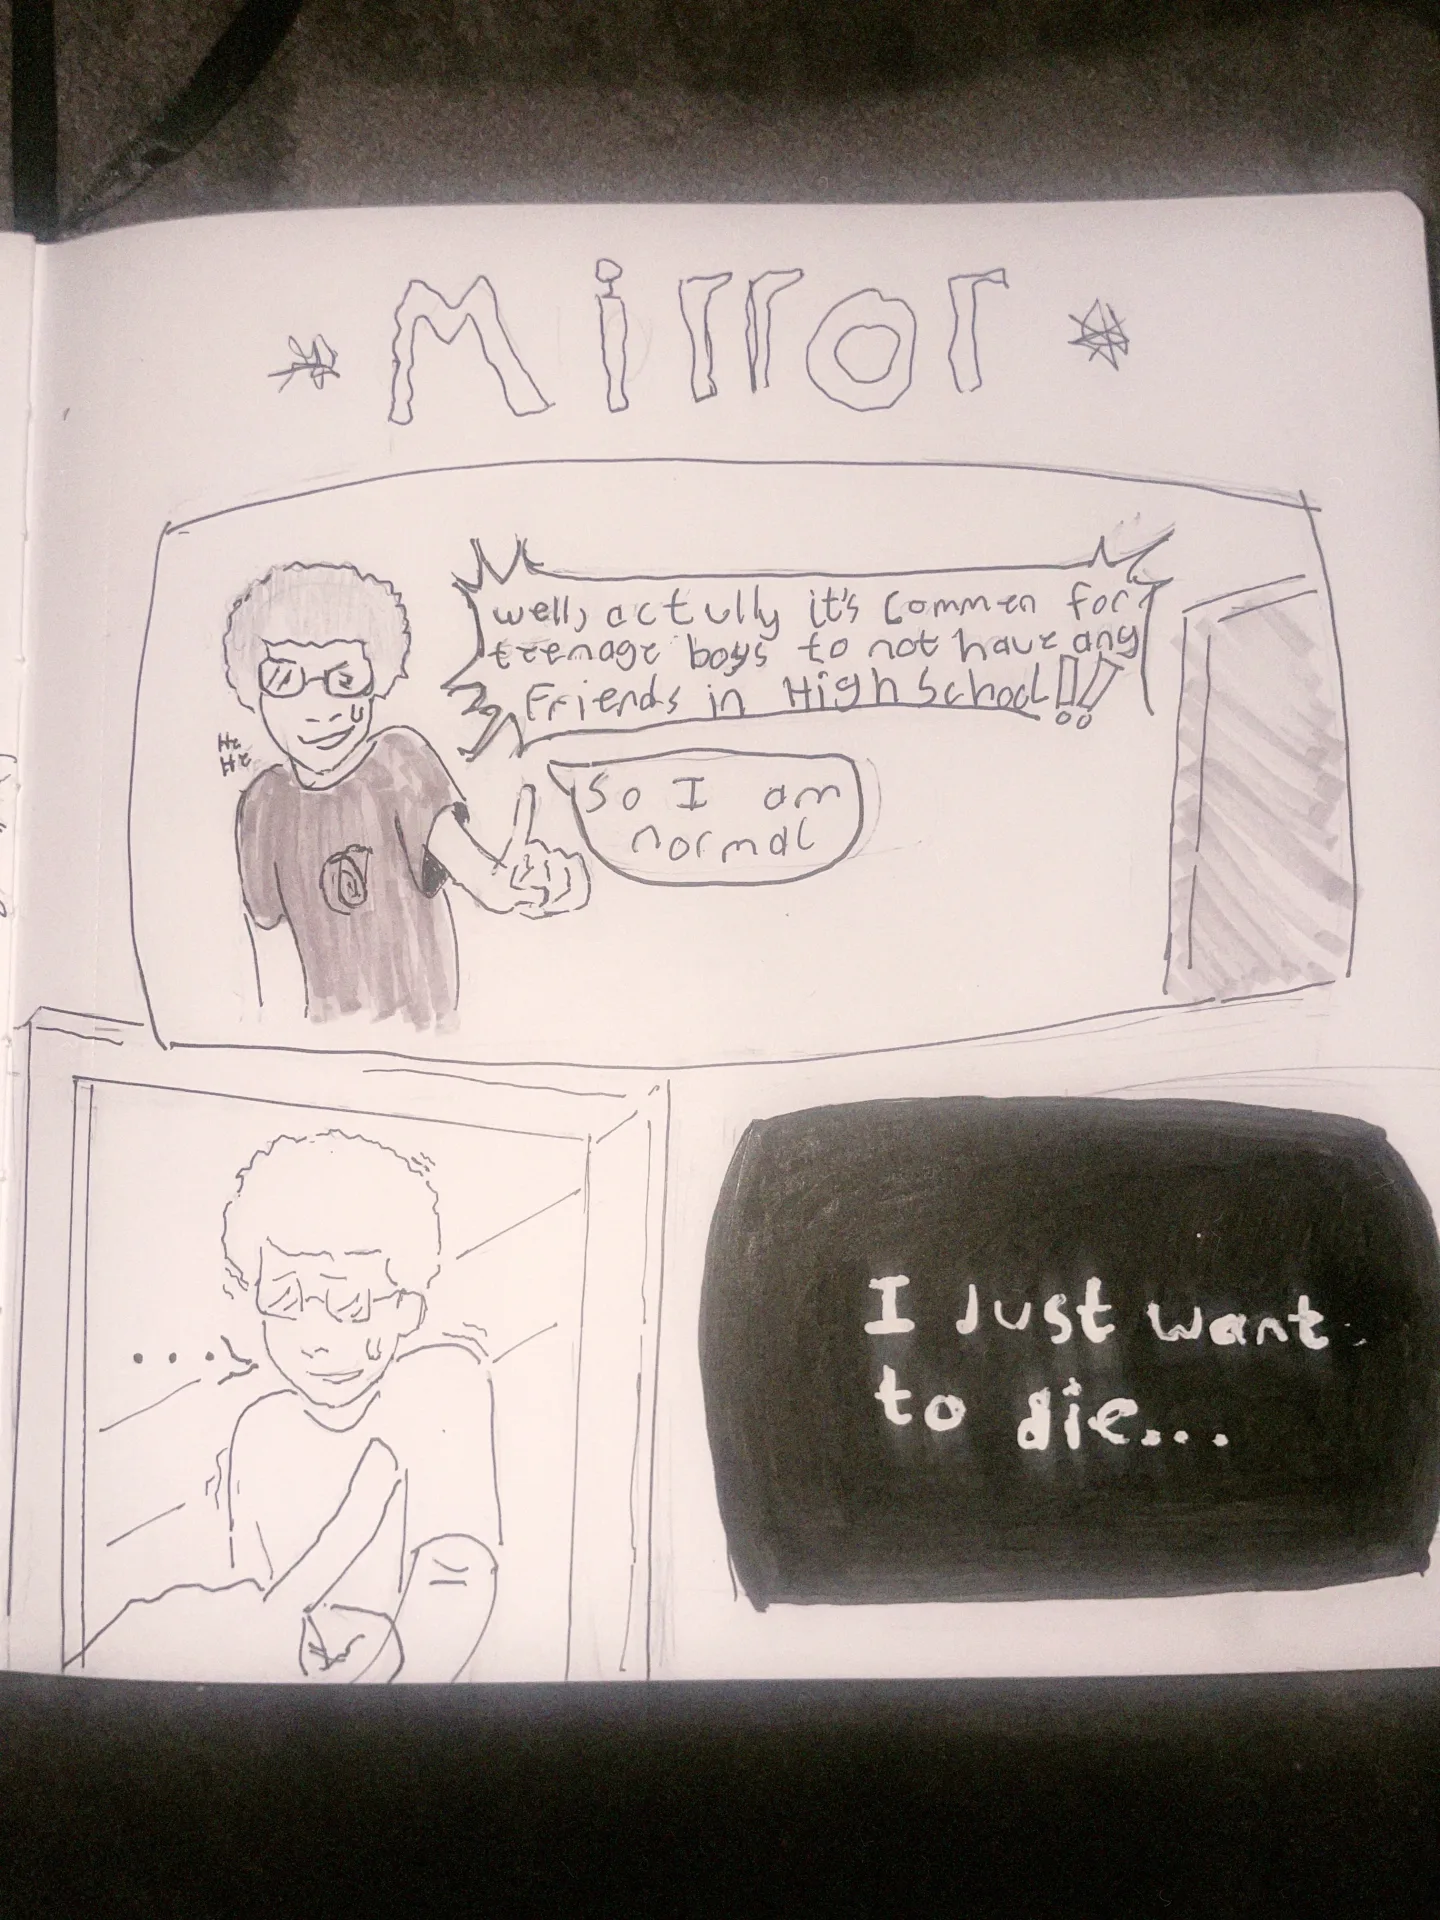 Mirror
well, actully it's commen for
teenage boys to not have any
Friends in High School!!
He
He
So I am
normal
....
I Just want
to die...